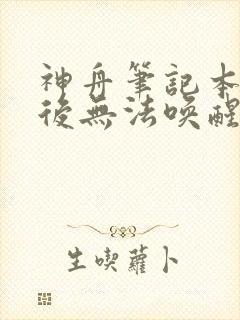 神舟筆記本
後無法喚醒
生喫蘿卜